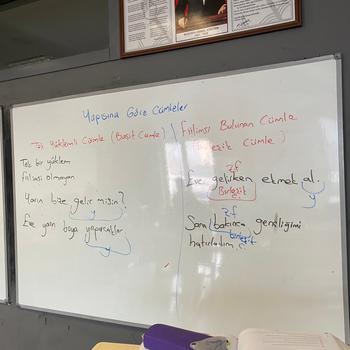 Yapısına Göre Cümleler
Tek Yüklemli Cümle (Basit Cümle)
Tek bir yüklem
Fiilimsi olmayan
Yarın bize gelir misin?
y
Eve yarın boya yapacaklar
y
Fiilimsi Bulunan Cümle
Cümle)
zf
Eve gelirken ekmek al.
Birleşik
y
zf
Sana bakınca gençliğimi
hatırladım.
birleşik